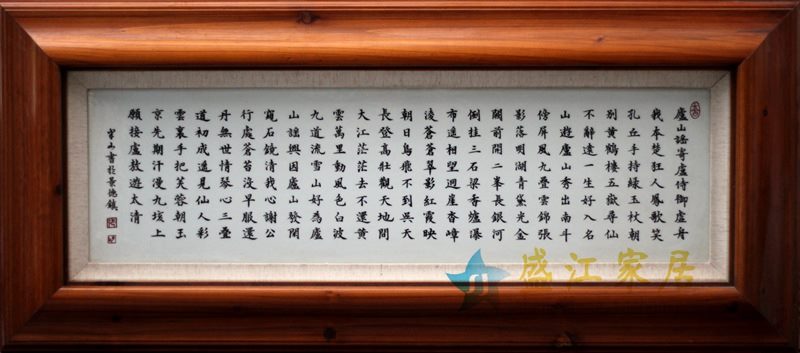 廬山謠寄盧侍御虛舟
我本楚狂人鳳歌笑
孔丘手持綠玉杖朝
別黃鶴樓五嶽尋仙
不辭遠一生好入名
山遊廬山秀出南斗
傍屏風九疊雲錦張
影落明湖青黛光金
闕前開二峯長銀河
倒挂三石梁香爐瀑
布遙相望迴崖沓嶂
凌蒼蒼翠影紅霞映
朝日鳥飛不到吳天
長登高壯觀天地間
大江茫茫去不還黃
雲萬里動風色白波
九道流雪山好為廬
山謠興因廬山發閑
窺石鏡清我心謝公
行處蒼苔沒早服還
丹無世情琴心三疊
道初成遙見仙人彩
雲裏手把芙蓉朝玉
京先期汗漫九垓上
願接盧敖遊太清
山書於景德鎮
盛江家居